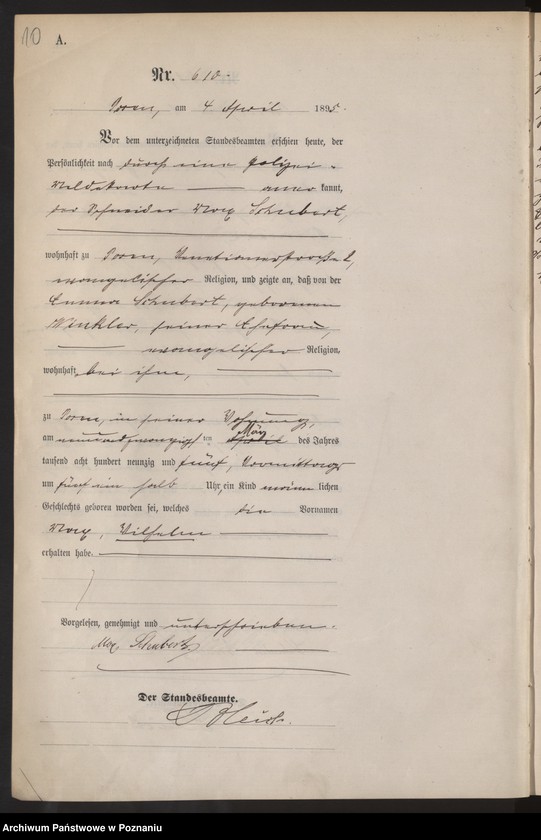 10
A.
Nr. 610.
Posen, am 4 April 1895.
Vor dem unterzeichneten Standesbeamten erschien heute, der
Persönlichkeit nach durch eine Polizei-
Meldekarte anerkannt,
der Schneider Max Schubert,
wohnhaft zu Posen,
evangelischer Religion, und zeigte an, daß von der
Emma Schubert, geborenen
Winkler, seiner Ehefrau,
evangelischer Religion,
wohnhaft bei ihm,
zu Posen, in seiner Wohnung,
am neunundzwanzigsten April März des Jahres
tausend acht hundert neunzig und fünf, Vormittags
um fünf ein halb Uhr, ein Kind männlichen
Geschlechts geboren worden sei, welches die Vornamen
Max, Wilhelm
erhalten habe.
Vorgelesen, genehmigt und unterschrieben.
Max Schubert
Der Standesbeamte.
Archiwum Państwowe w Poznaniu